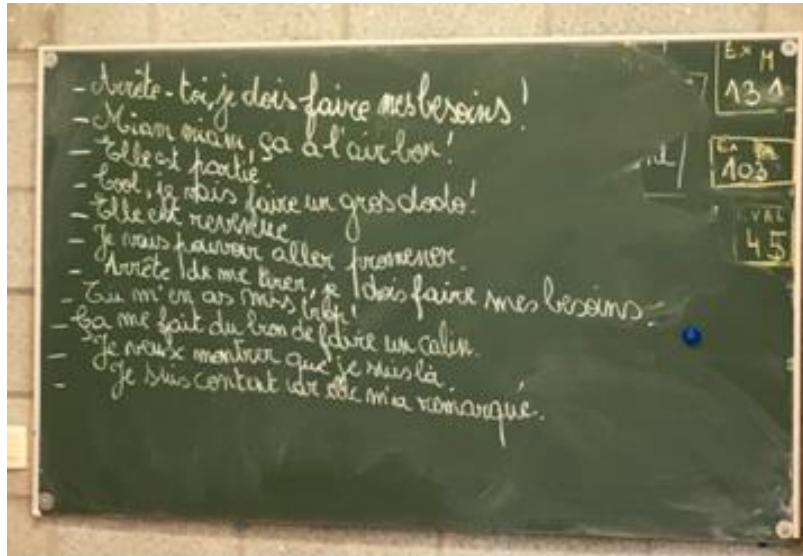 - Arrête-toi, je dois faire mes besoins !
- Miam miam, ça à l'air bon !
- Elle est partie
- Cool, je vais faire un gros dodo !
- Elle est revenue
- Je vais pouvoir aller promener.
- Arrête de me tirer, je dois faire mes besoins.
- Tu m'en as mis trop !
- Ça me fait du bon de faire un calin.
- Je veux montrer que je suis là.
- Je suis content car elle m'a remarqué.
Ex M
131
Ex
103
EVAL
45